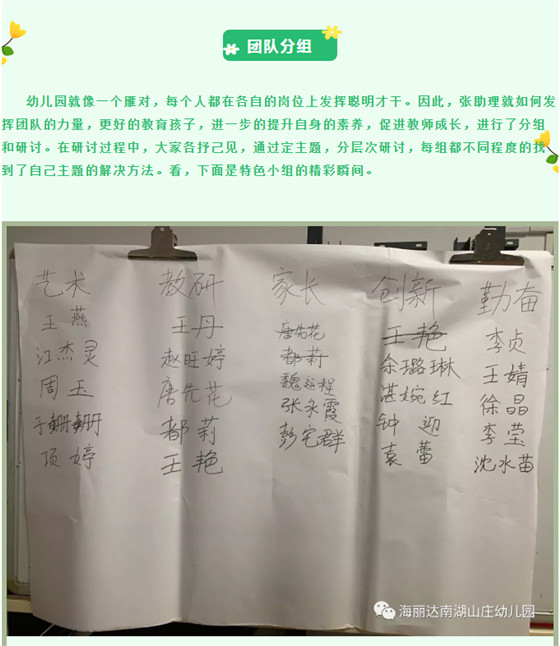 团队分组
幼儿园就像一个雁对，每个人都在各自的岗位上发挥聪明才干。因此，张助理就如何发
挥团队的力量，更好的教育孩子，进一步的提升自身的素养，促进教师成长，进行了分组
和研讨。在研讨过程中，大家各抒己见，通过定主题，分层次研讨，每组都不同程度的找
到了自己主题的解决方法。看，下面是特色小组的精彩瞬间。
艺术 教研 家长 创新 勤奋
王燕 王丹 唐先花 王艳 李贞
江杰灵 赵旺婷 都莉 余璐琳 王婧
周玉 唐先花 魏 程 湛婉红 徐晶
于姗姗 都莉 张永霞 钟迎 李莹
项婷 王艳 彭宅群 袁蕾 沈水苗
海丽达南湖山庄幼儿园